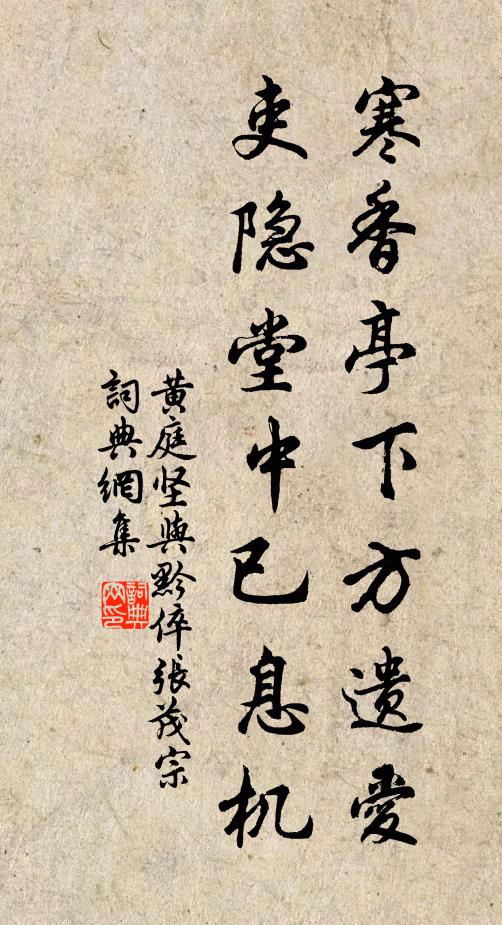 寒香亭下方遗愛
吏隐堂中已息机
黄庭坚與黔倅張茂宗
詞典網集
詞典网印